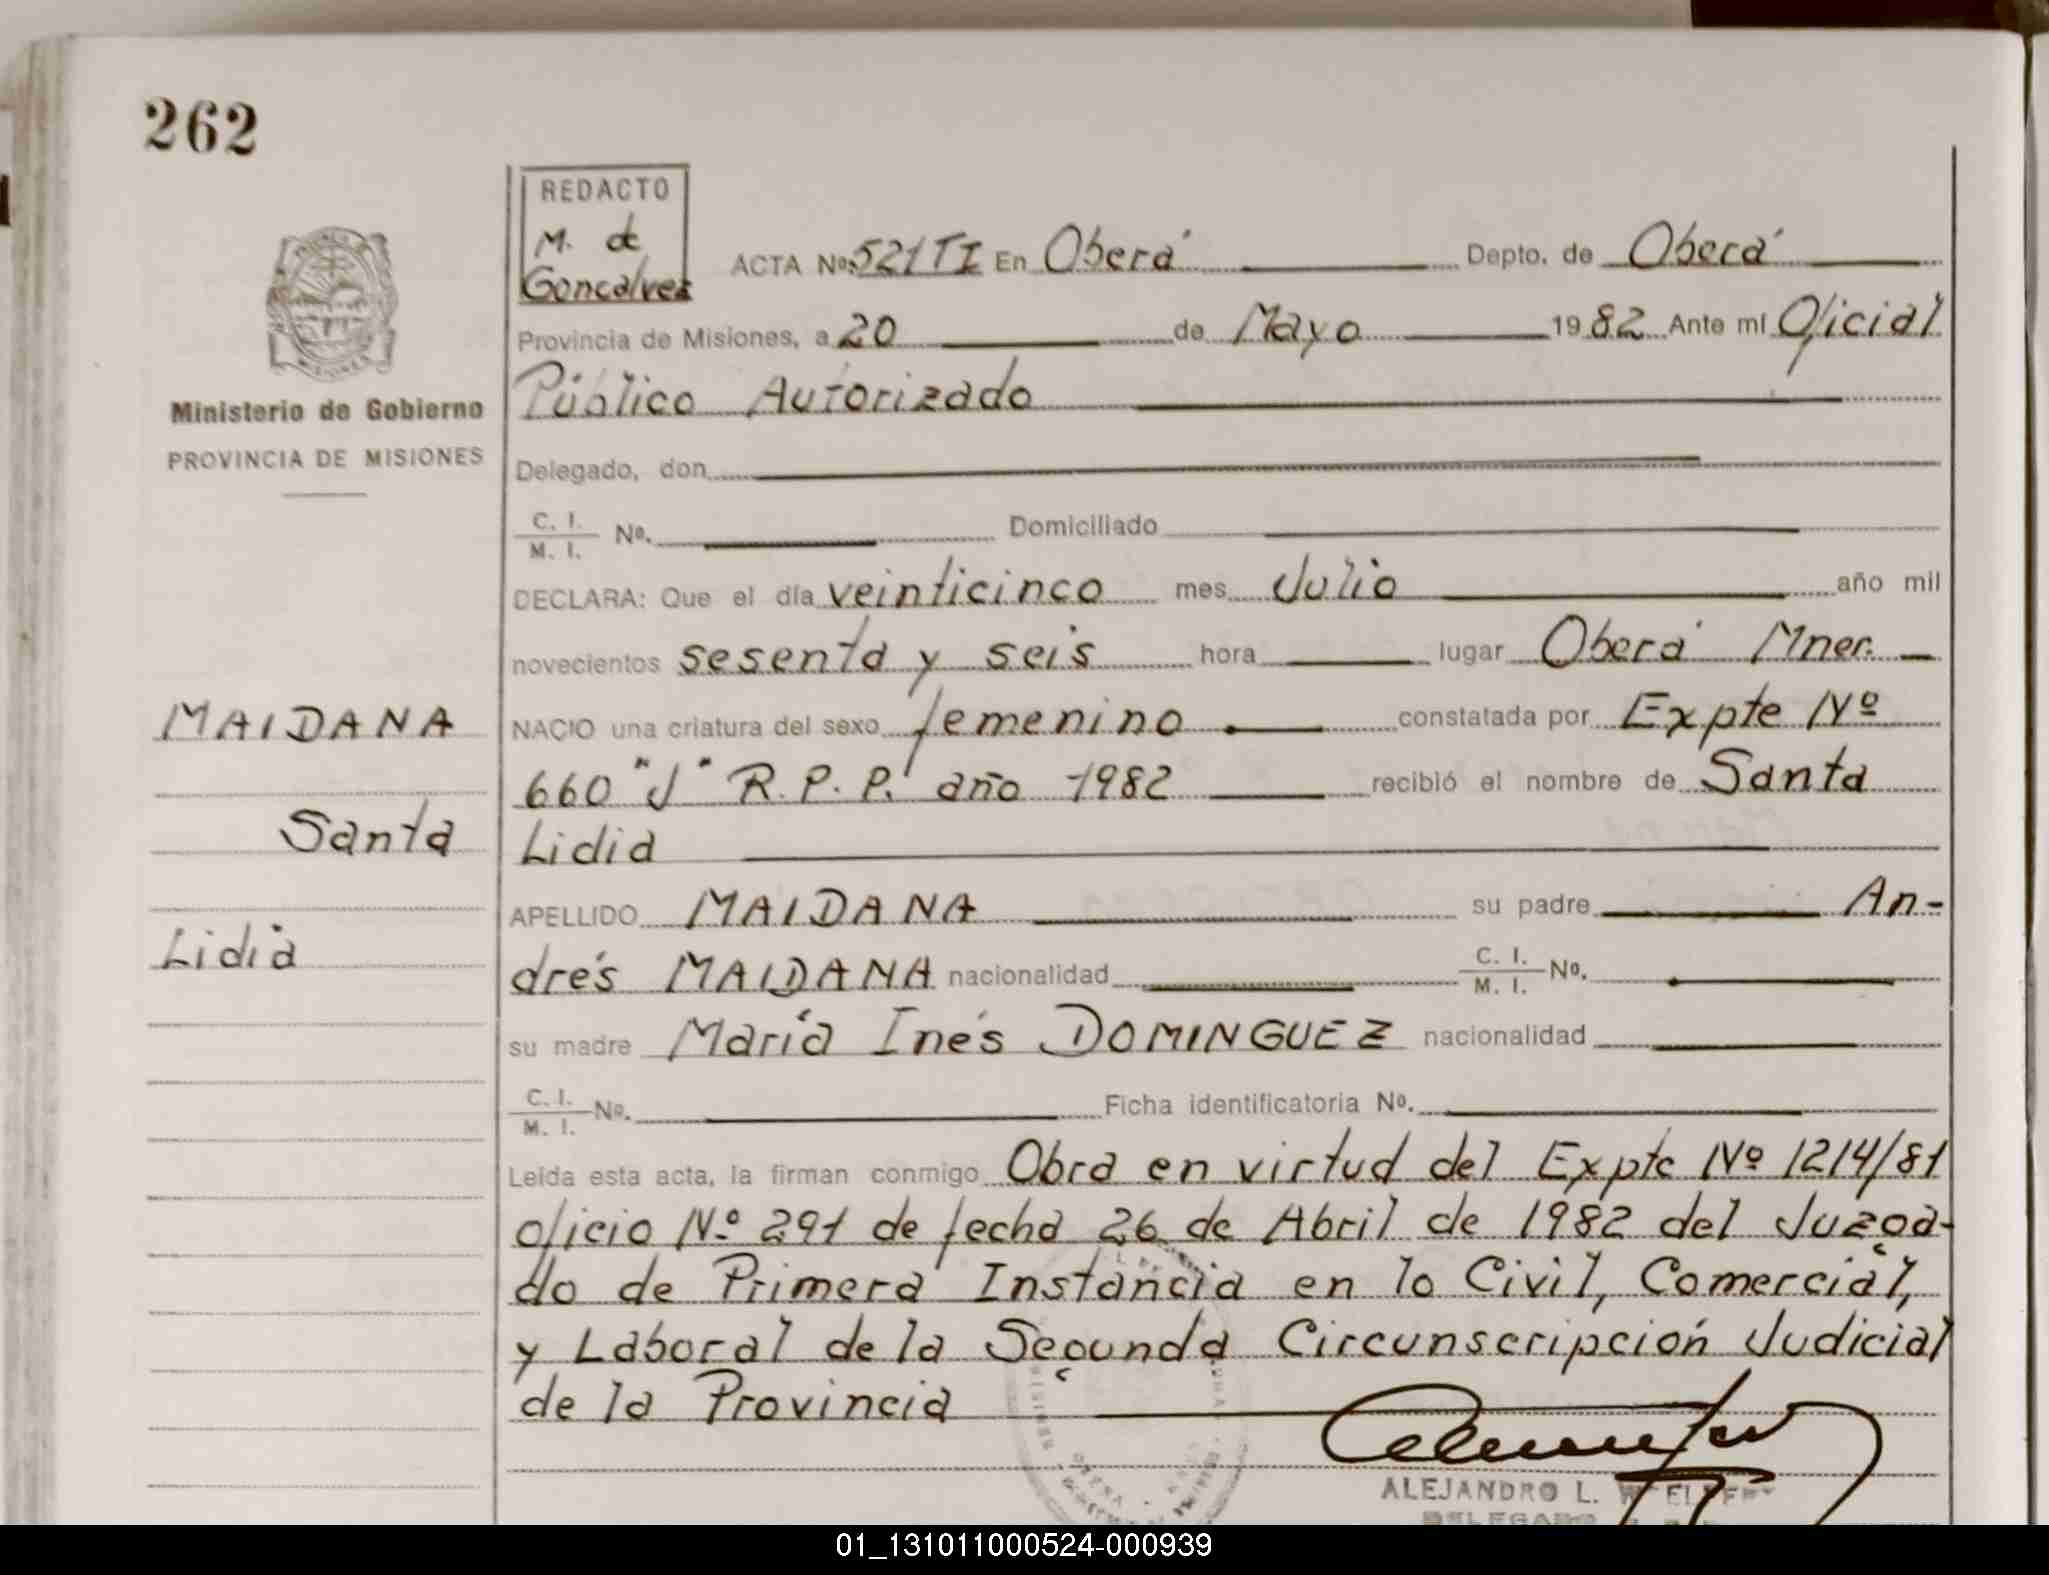 262
REDACTO
M. de
Goncalvez
ACTA Nº 521 TI En Oberá Depto. de Oberá
Provincia de Misiones, a 20 de Mayo 1982 Ante mi Oficial
Público Autorizado
Ministerio de Gobierno
PROVINCIA DE MISIONES
Delegado, don
C. I.
M. I. Nº. Domiciliado
DECLARA: Que el día veinticinco mes Julio año mil
novecientos sesenta y seis hora lugar Oberá Mnes.
NACIO una criatura del sexo femenino constatada por Expte Nº
660 "J" R. P. P. año 1982 recibió el nombre de Santa
Lidia
MAIDANA
Santa
Lidia
APELLIDO MAIDANA su padre An-
drés MAIDANA nacionalidad C. I.
M. I. Nº.
su madre María Inés DOMINGUEZ nacionalidad
C. I.
M. I. Nº. Ficha identificatoria Nº.
Leída esta acta, la firman conmigo Obra en virtud del Expte Nº 1214/81
oficio Nº 291 de fecha 26 de Abril de 1982 del Juzga-
do de Primera Instancia en lo Civil, Comercial,
y Laboral de la Segunda Circunscripción Judicial
de la Provincia
ALEJANDRO L.
01_131011000524-000939